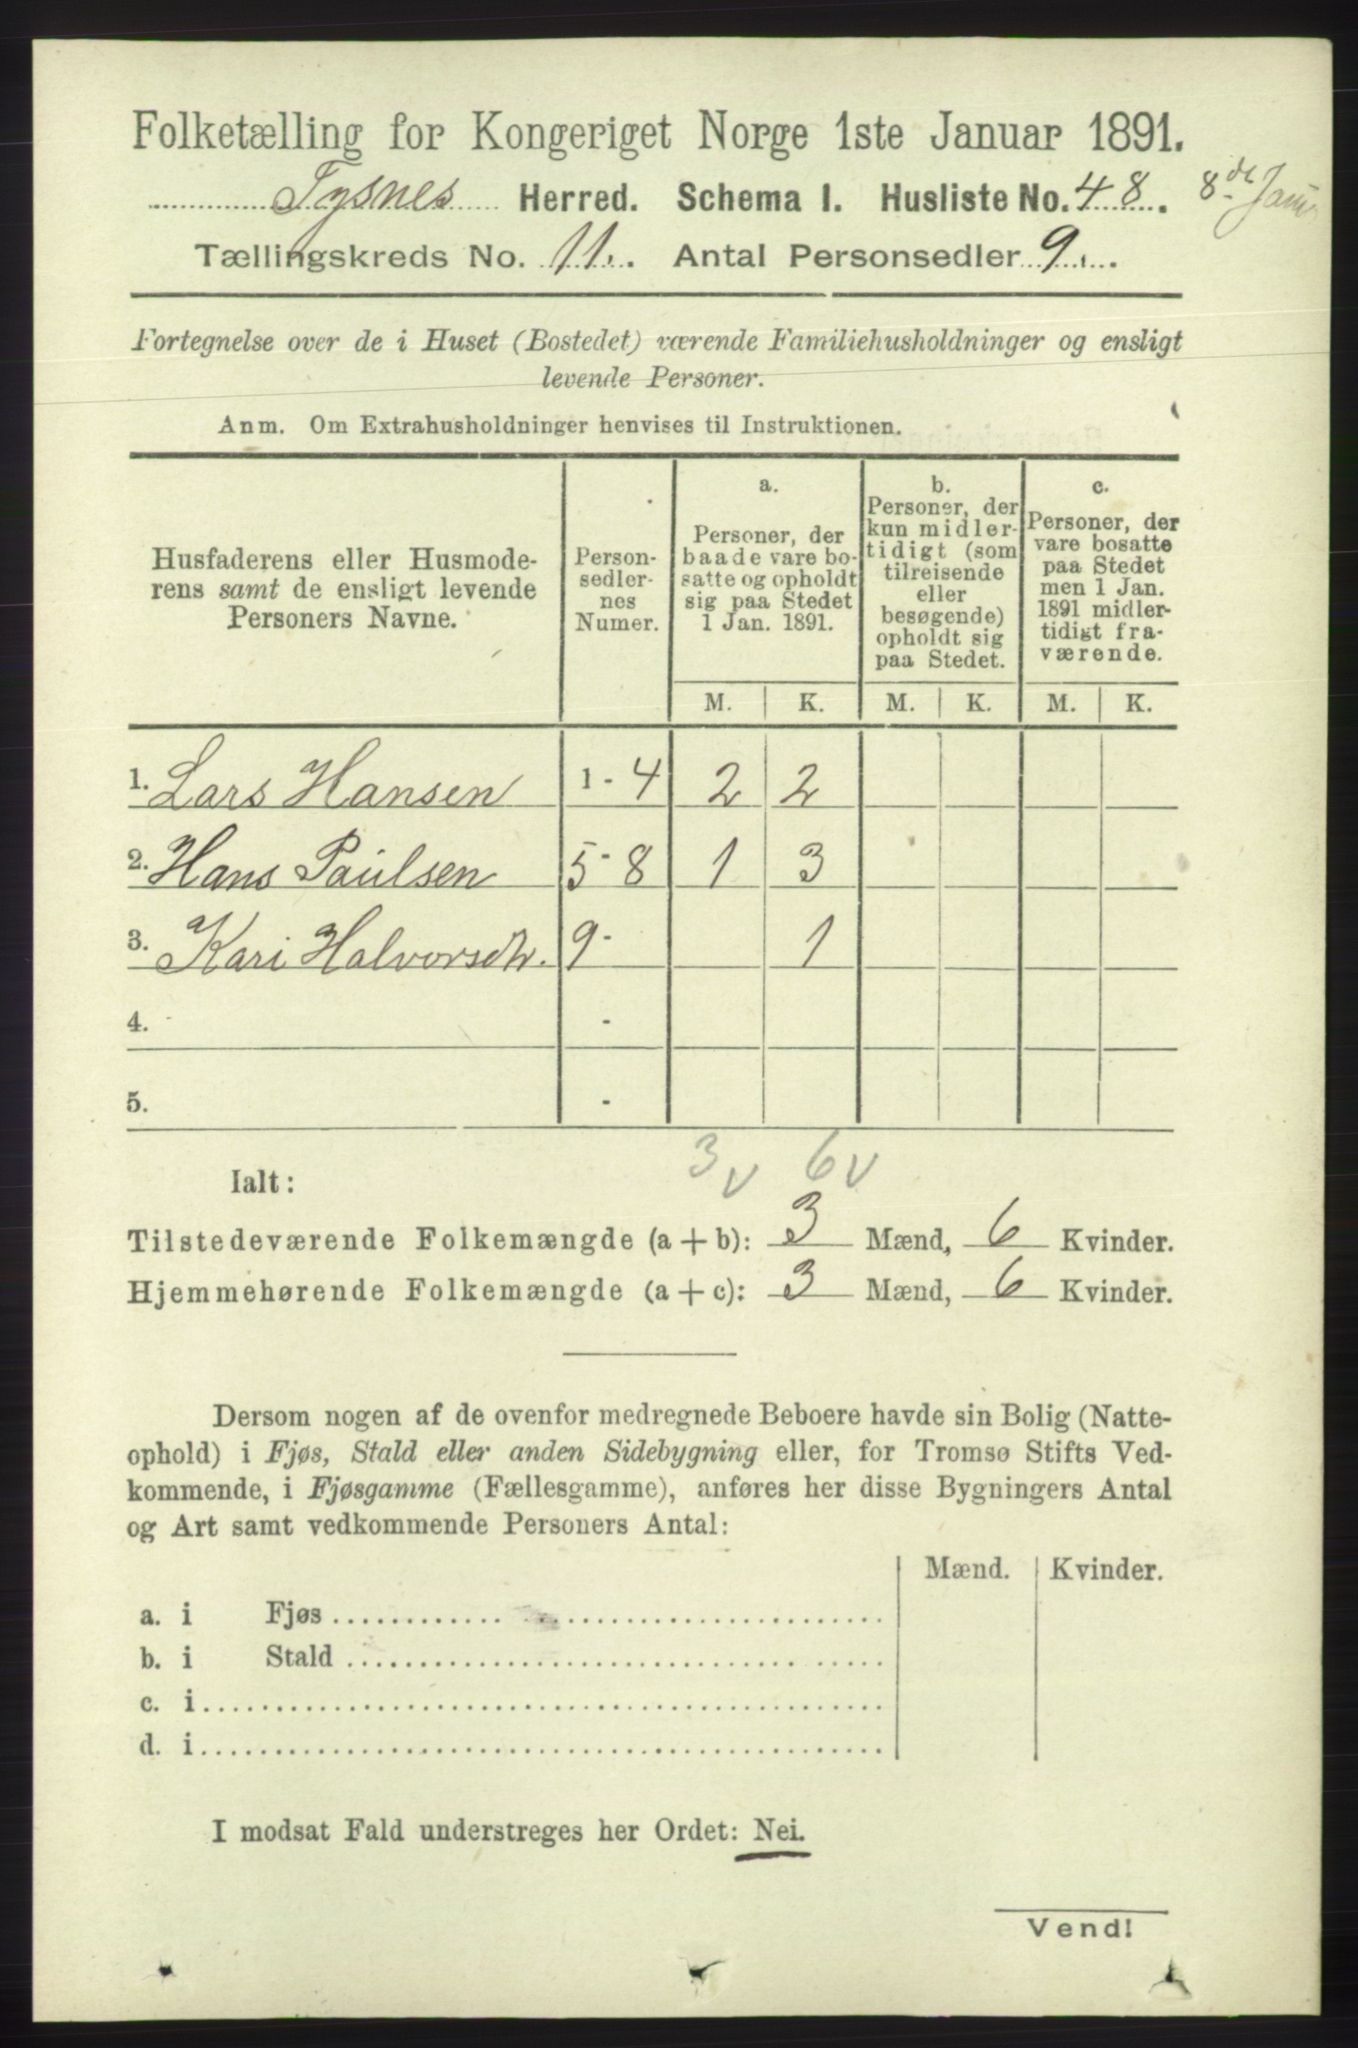 Folketælling for Kongeriget Norge 1ste Januar 1891.
Tysnes Herred. Schema I. Husliste No. 48. 8de Janr
Tællingskreds No. 11. Antal Personsedler 9.
Fortegnelse over de i Huset (Bostedet) værende Familiehusholdninger og ensligt
levende Personer.
Anm. Om Extrahusholdninger henvises til Instruktionen.
Husfaderens eller Husmode-
rens samt de ensligt levende
Personers Navne.
Person-
sedler-
nes
Numer.
a.
Personer, der
baade vare bo-
satte og opholdt
sig paa Stedet
1 Jan. 1891.
b.
Personer, der
kun midler-
tidigt (som
tilreisende
eller
besøgende)
opholdt sig
paa Stedet.
c.
Personer, der
vare bosatte
paa Stedet
men 1 Jan.
1891 midler-
tidigt fra-
værende.
M. K. M. K. M. K.
1. Lars Hansen 1-4 2 2
2. Hans Paulsen 5-8 1 3
3. Kari Halvorsdtr. 9- 1
4. -
5. -
3 v 6 v
Ialt:
Tilstedeværende Folkemængde (a + b): 3 Mænd, 6 Kvinder.
Hjemmehørende Folkemængde (a + c): 3 Mænd, 6 Kvinder.
Dersom nogen af de ovenfor medregnede Beboere havde sin Bolig (Natte-
ophold) i Fjøs, Stald eller anden Sidebygning eller, for Tromsø Stifts Ved-
kommende, i Fjøsgamme (Fællesgamme), anføres her disse Bygningers Antal
og Art samt vedkommende Personers Antal:
Mænd. Kvinder.
a. i Fjøs
b. i Stald
c. i
d. i
I modsat Fald understreges her Ordet: Nei.
Vend!